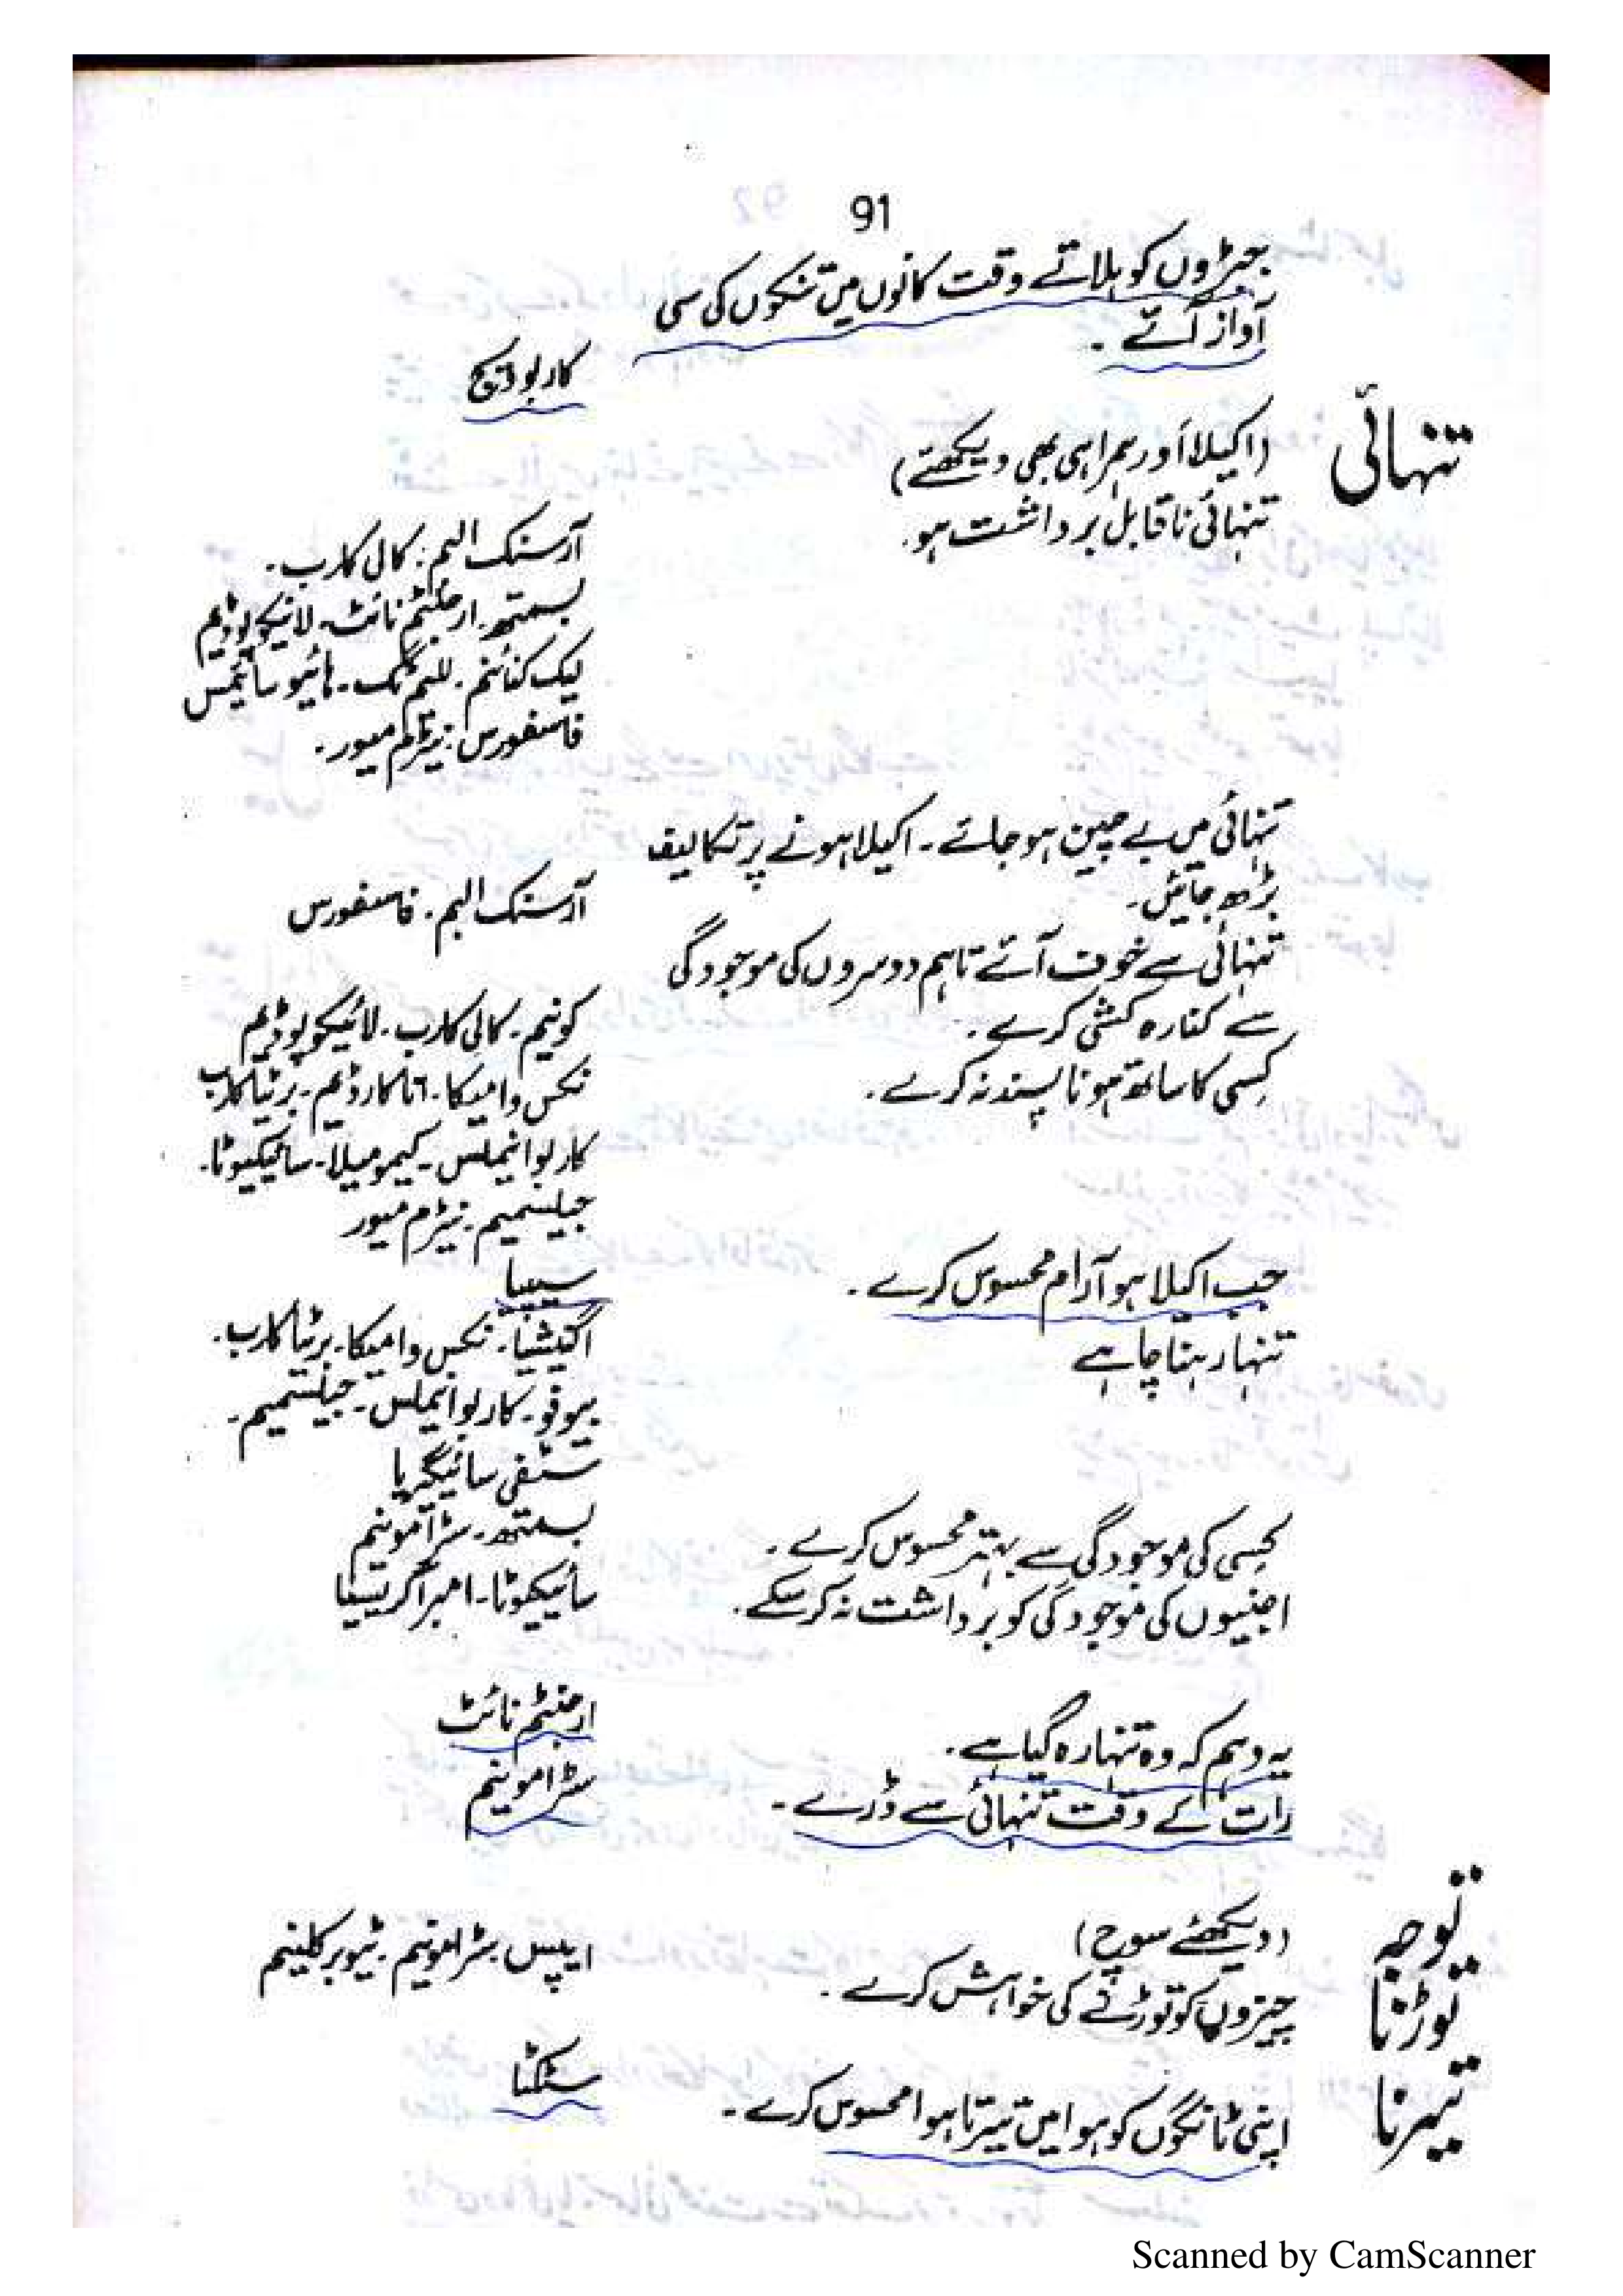 91
جبڑوں کو ہلاتے وقت کانوں میں تنکوں کی سی
آواز آئے ۔
کاربو ویج
تنہائی
(اکیلا اور ہمراہی بھی دیکھئے)
تنہائی ناقابل برداشت ہو۔
آرسنک البم ۔ کالی کارب ۔
بسمتھ ۔ ارجنٹم نائٹ ۔ لائیکوپوڈیم
لیک کنائنم ۔ للیم ٹگ ۔ ہائیوسائمس
فاسفورس ۔ نیٹرم میور ۔
تنہائی میں بے چین ہو جائے ۔ اکیلا ہونے پر تکالیف
بڑھ جائیں ۔
آرسنک البم ۔ فاسفورس
تنہائی سے خوف آئے تاہم دوسروں کی موجودگی
سے کنارہ کشی کرے ۔
کونیم ۔ کالی کارب ۔ لائیکوپوڈیم
کسی کا ساتھ ہونا پسند نہ کرے ۔
نکس وامیکا ۔ اناکارڈیم ۔ برئٹا کارب
کاربو انیملس ۔ کیمومیلا ۔ سائیکیوٹا ۔
جیلسمیم ۔ نیٹرم میور
جب اکیلا ہو آرام محسوس کرے ۔
سیپیا
تنہا رہنا چاہے
اگنیشیا ۔ نکس وامیکا ۔ برئٹا کارب ۔
بیوفو ۔ کاربو انیملس ۔ جیلسمیم ۔
سٹفی سائیگیریا
کسی کی موجودگی سے بہتر محسوس کرے ۔
بسمتھ ۔ سٹرامونیم
اجنبیوں کی موجودگی کو برداشت نہ کر سکے ۔
سائیکوٹا ۔ امبرا گریسیا
یہ وہم کہ وہ تنہا رہ گیا ہے ۔
ارجنٹم نائٹ
رات کے وقت تنہائی سے ڈرے ۔
سٹرامونیم
توجہ
(دیکھئے سوچ)
توڑنا
چیزوں کو توڑنے کی خواہش کرے ۔
ایپس ۔ سٹرامونیم ۔ ٹیوبرکلینم
تیرنا
اپنی ٹانگوں کو ہوا میں تیرتا ہوا محسوس کرے ۔
سٹکٹا
Scanned by CamScanner